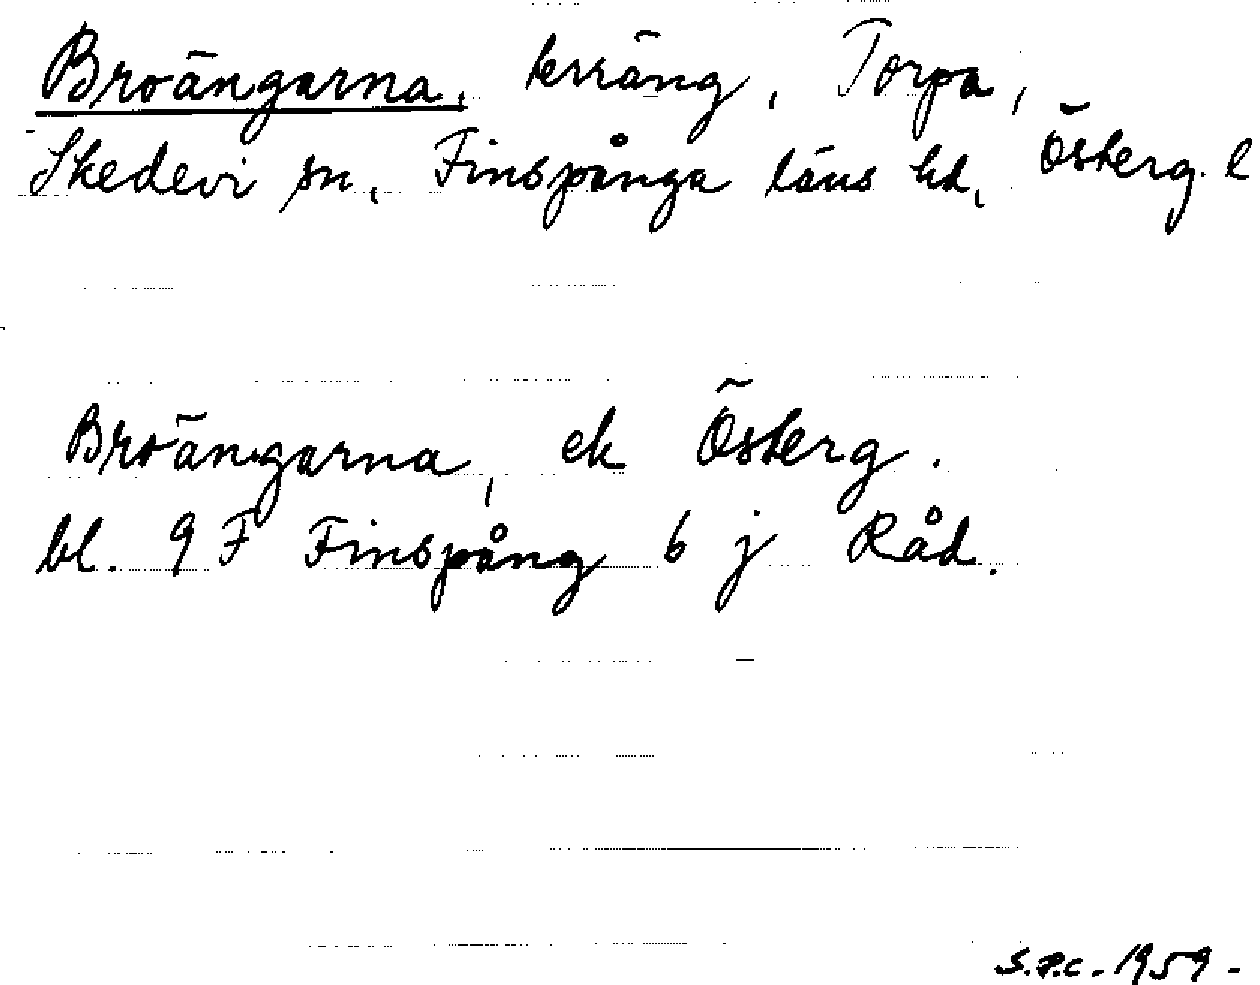 Broängarna, terräng, Torpa,
Skedevi sn, Finspånga läns hd, Österg. l
Broängarna, ek Österg.
bl. 9 F Finspång 6 j Råd.
S.P.C. 1959